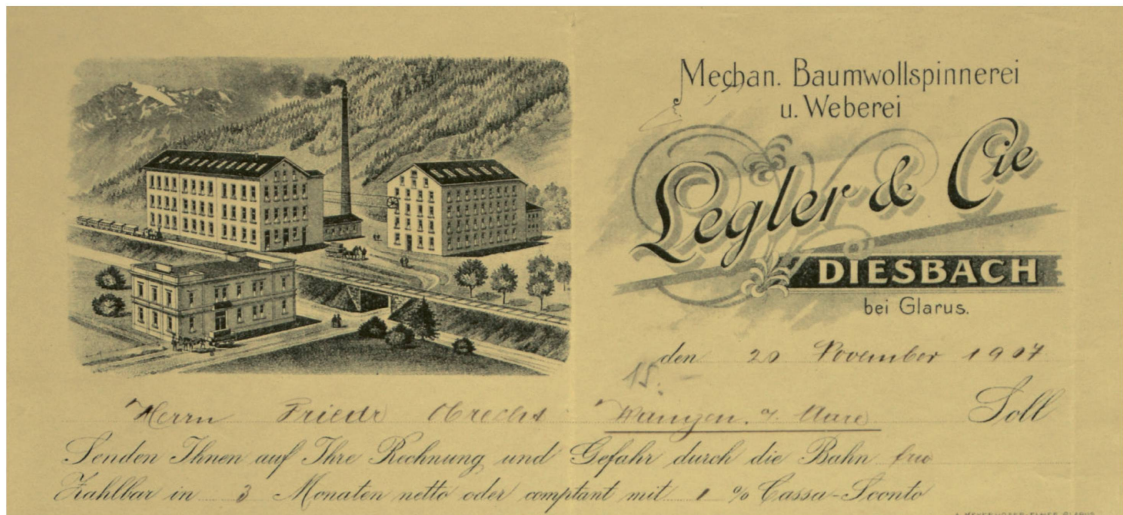 Mechan. Baumwollspinnerei
u. Weberei
Legler & Cie
DIESBACH
bei Glarus.
den 20 November 1907
15.
Herrn Friedr Obrecht Wangen a/ Aare Soll
Senden Ihnen auf Ihre Rechnung und Gefahr durch die Bahn frco
Zahlbar in 3 Monaten netto oder comptant mit 1 % Cassa-Sconto